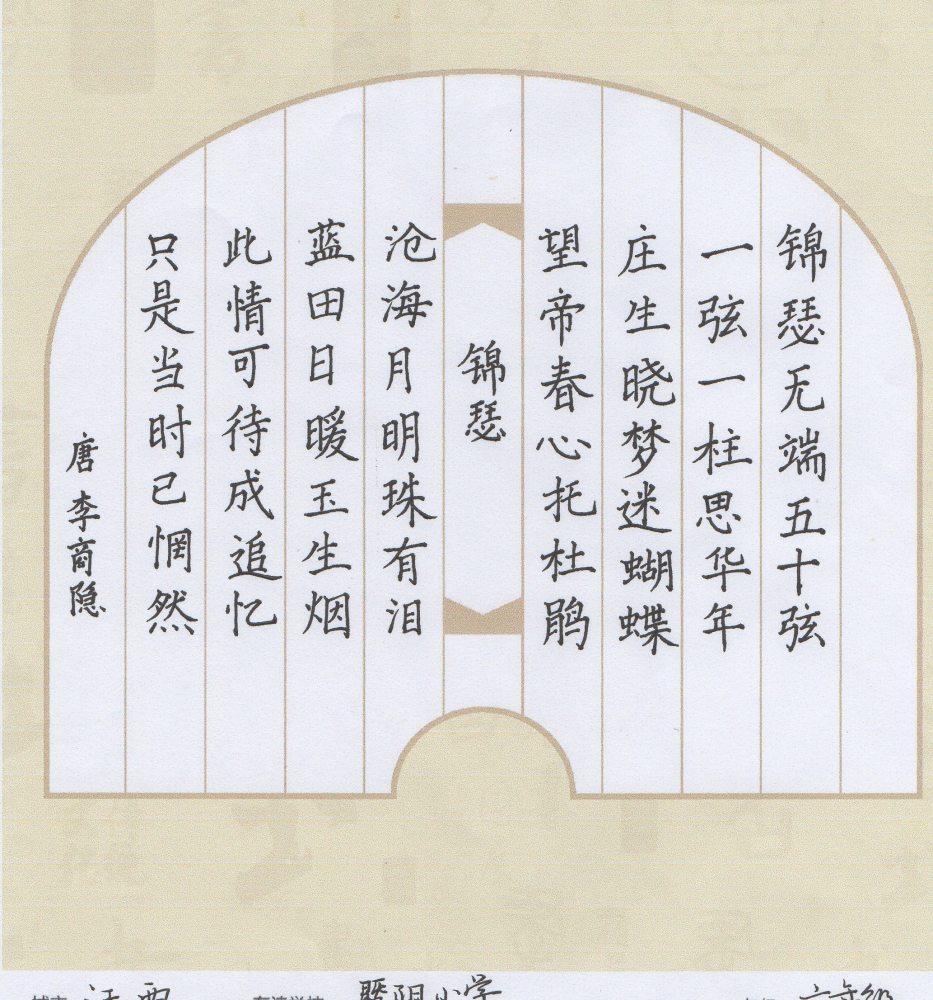 锦瑟无端五十弦
一弦一柱思华年
庄生晓梦迷蝴蝶
望帝春心托杜鹃
锦瑟
沧海月明珠有泪
蓝田日暖玉生烟
此情可待成追忆
只是当时已惘然
唐 李商隐